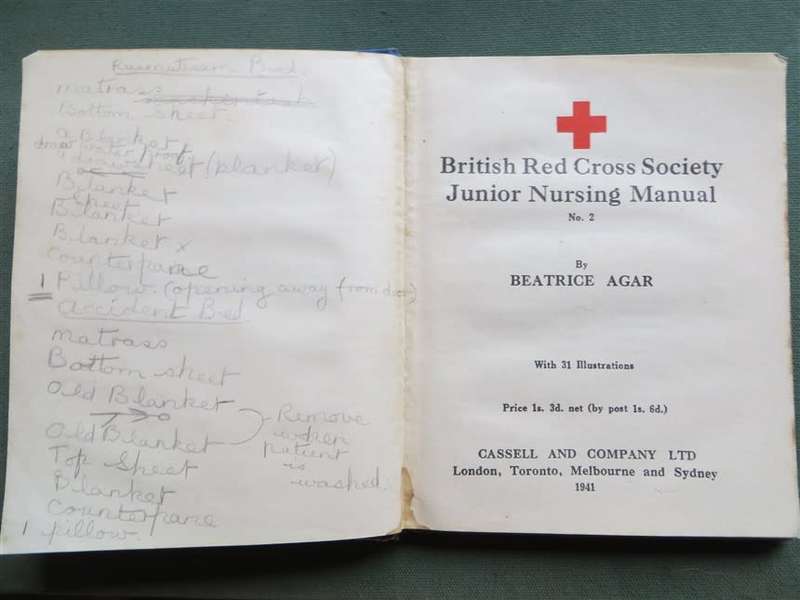 Rheumatism Bed.
matrass
Bottom sheet.
a Blanket
draw
sheet (blanket)
Blanket
Sheet
Blanket
Blanket x
Counterpane
1 Pillow. (opening away from door)
accident Bed
matrass
Bottom sheet
Old Blanket
Old Blanket
Remove
when
patient
is
washed.
Top Sheet
Blanket
Counterpane
1 pillow.
British Red Cross Society
Junior Nursing Manual
No. 2
By
BEATRICE AGAR
With 31 Illustrations
Price 1s. 3d. net (by post 1s. 6d.)
CASSELL AND COMPANY LTD
London, Toronto, Melbourne and Sydney
1941